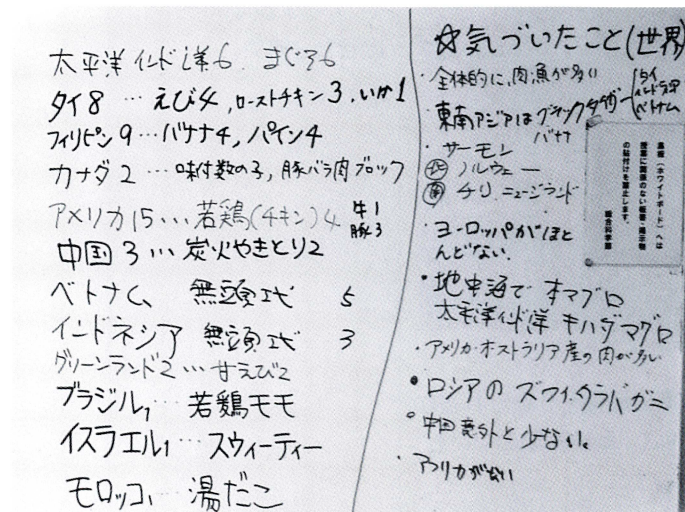 太平洋インド洋6 まぐろ6
タイ8 … えび4, ローストチキン3, いか1
フィリピン9 … バナナ4, パイン4
カナダ2 … 味付数の子, 豚バラ肉ブロック
アメリカ15 … 若鶏(チキン)4 牛1 豚3
中国3 … 炭火やきとり2
ベトナム 無頭エビ 5
インドネシア 無頭エビ 3
グリーンランド2 … 甘えび2
ブラジル1 若鶏モモ
イスラエル1 … スウィーティー
モロッコ1 … 湯だこ
☆気づいたこと(世界)
・全体的に、肉魚が多い
・東南アジアはブラックタイガー タイ インドネシア ベトナム
バナナ
・サーモン
ノルウェー
南 チリ, ニュージランド
・ヨーロッパがほと
んどない.
・地中海で 本マグロ
太平洋インド洋 キハダマグロ
・アメリカ・オストラリア産の肉が多い
・ロシアの ズワイ,タラバガニ
・中国意外と少ない。
・アフリカがない
黒板(ホワイトボード)へは
授業に関係のない板書・掲示物
の貼付けを禁止します。
総合科学部